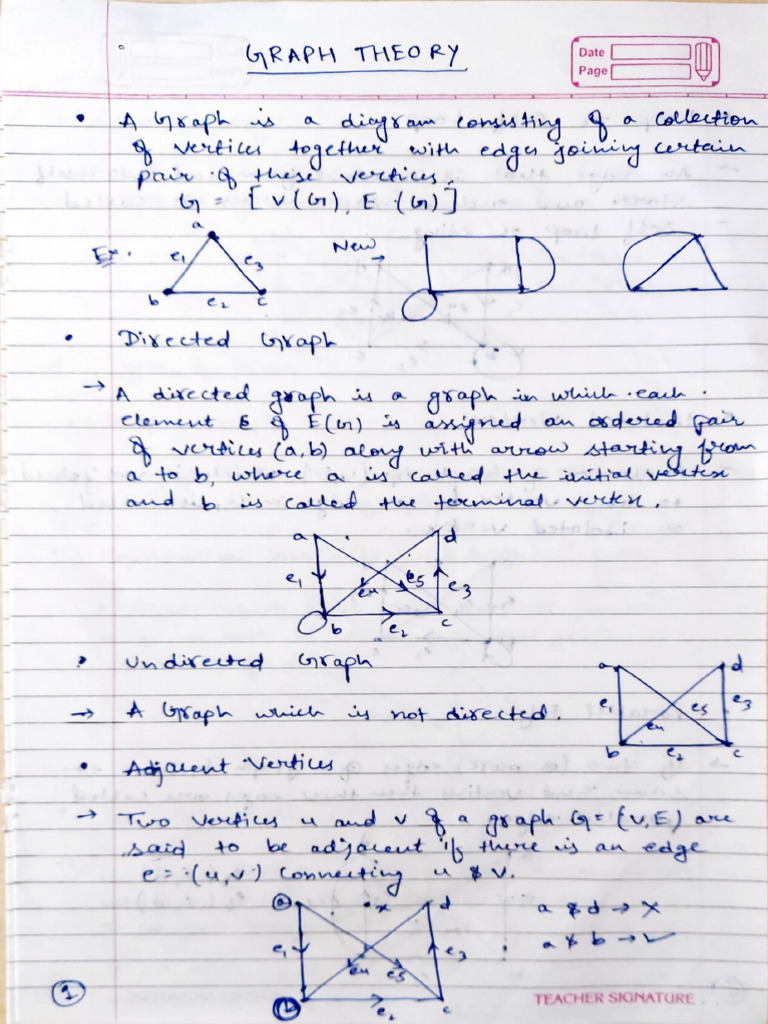 GRAPH THEORY
Date
Page
• A Graph is a diagram consisting of a collection
of vertices together with edges joining certain
pair of these vertices.
G = [V(G), E(G)]
Ex.
a
e1 e3
b e2 c
New →
• Directed Graph
→ A directed graph is a graph in which each
element of E(G) is assigned an ordered pair
of vertices (a,b) along with arrow starting from
a to b, where a is called the initial vertex
and b is called the terminal vertex.
a d
e1 e4 e5 e3
b e2 c
• Undirected Graph
→ A Graph which is not directed.
a d
e1 e4 e5 e3
b e2 c
• Adjacent Vertices
→ Two vertices u and v of a graph G=(V,E) are
said to be adjacent if there is an edge
e = (u,v) connecting u & v.
a x d
e1 e4 e5 e3
b e2 c
a & d → ×
a & b → ✓
1
TEACHER SIGNATURE